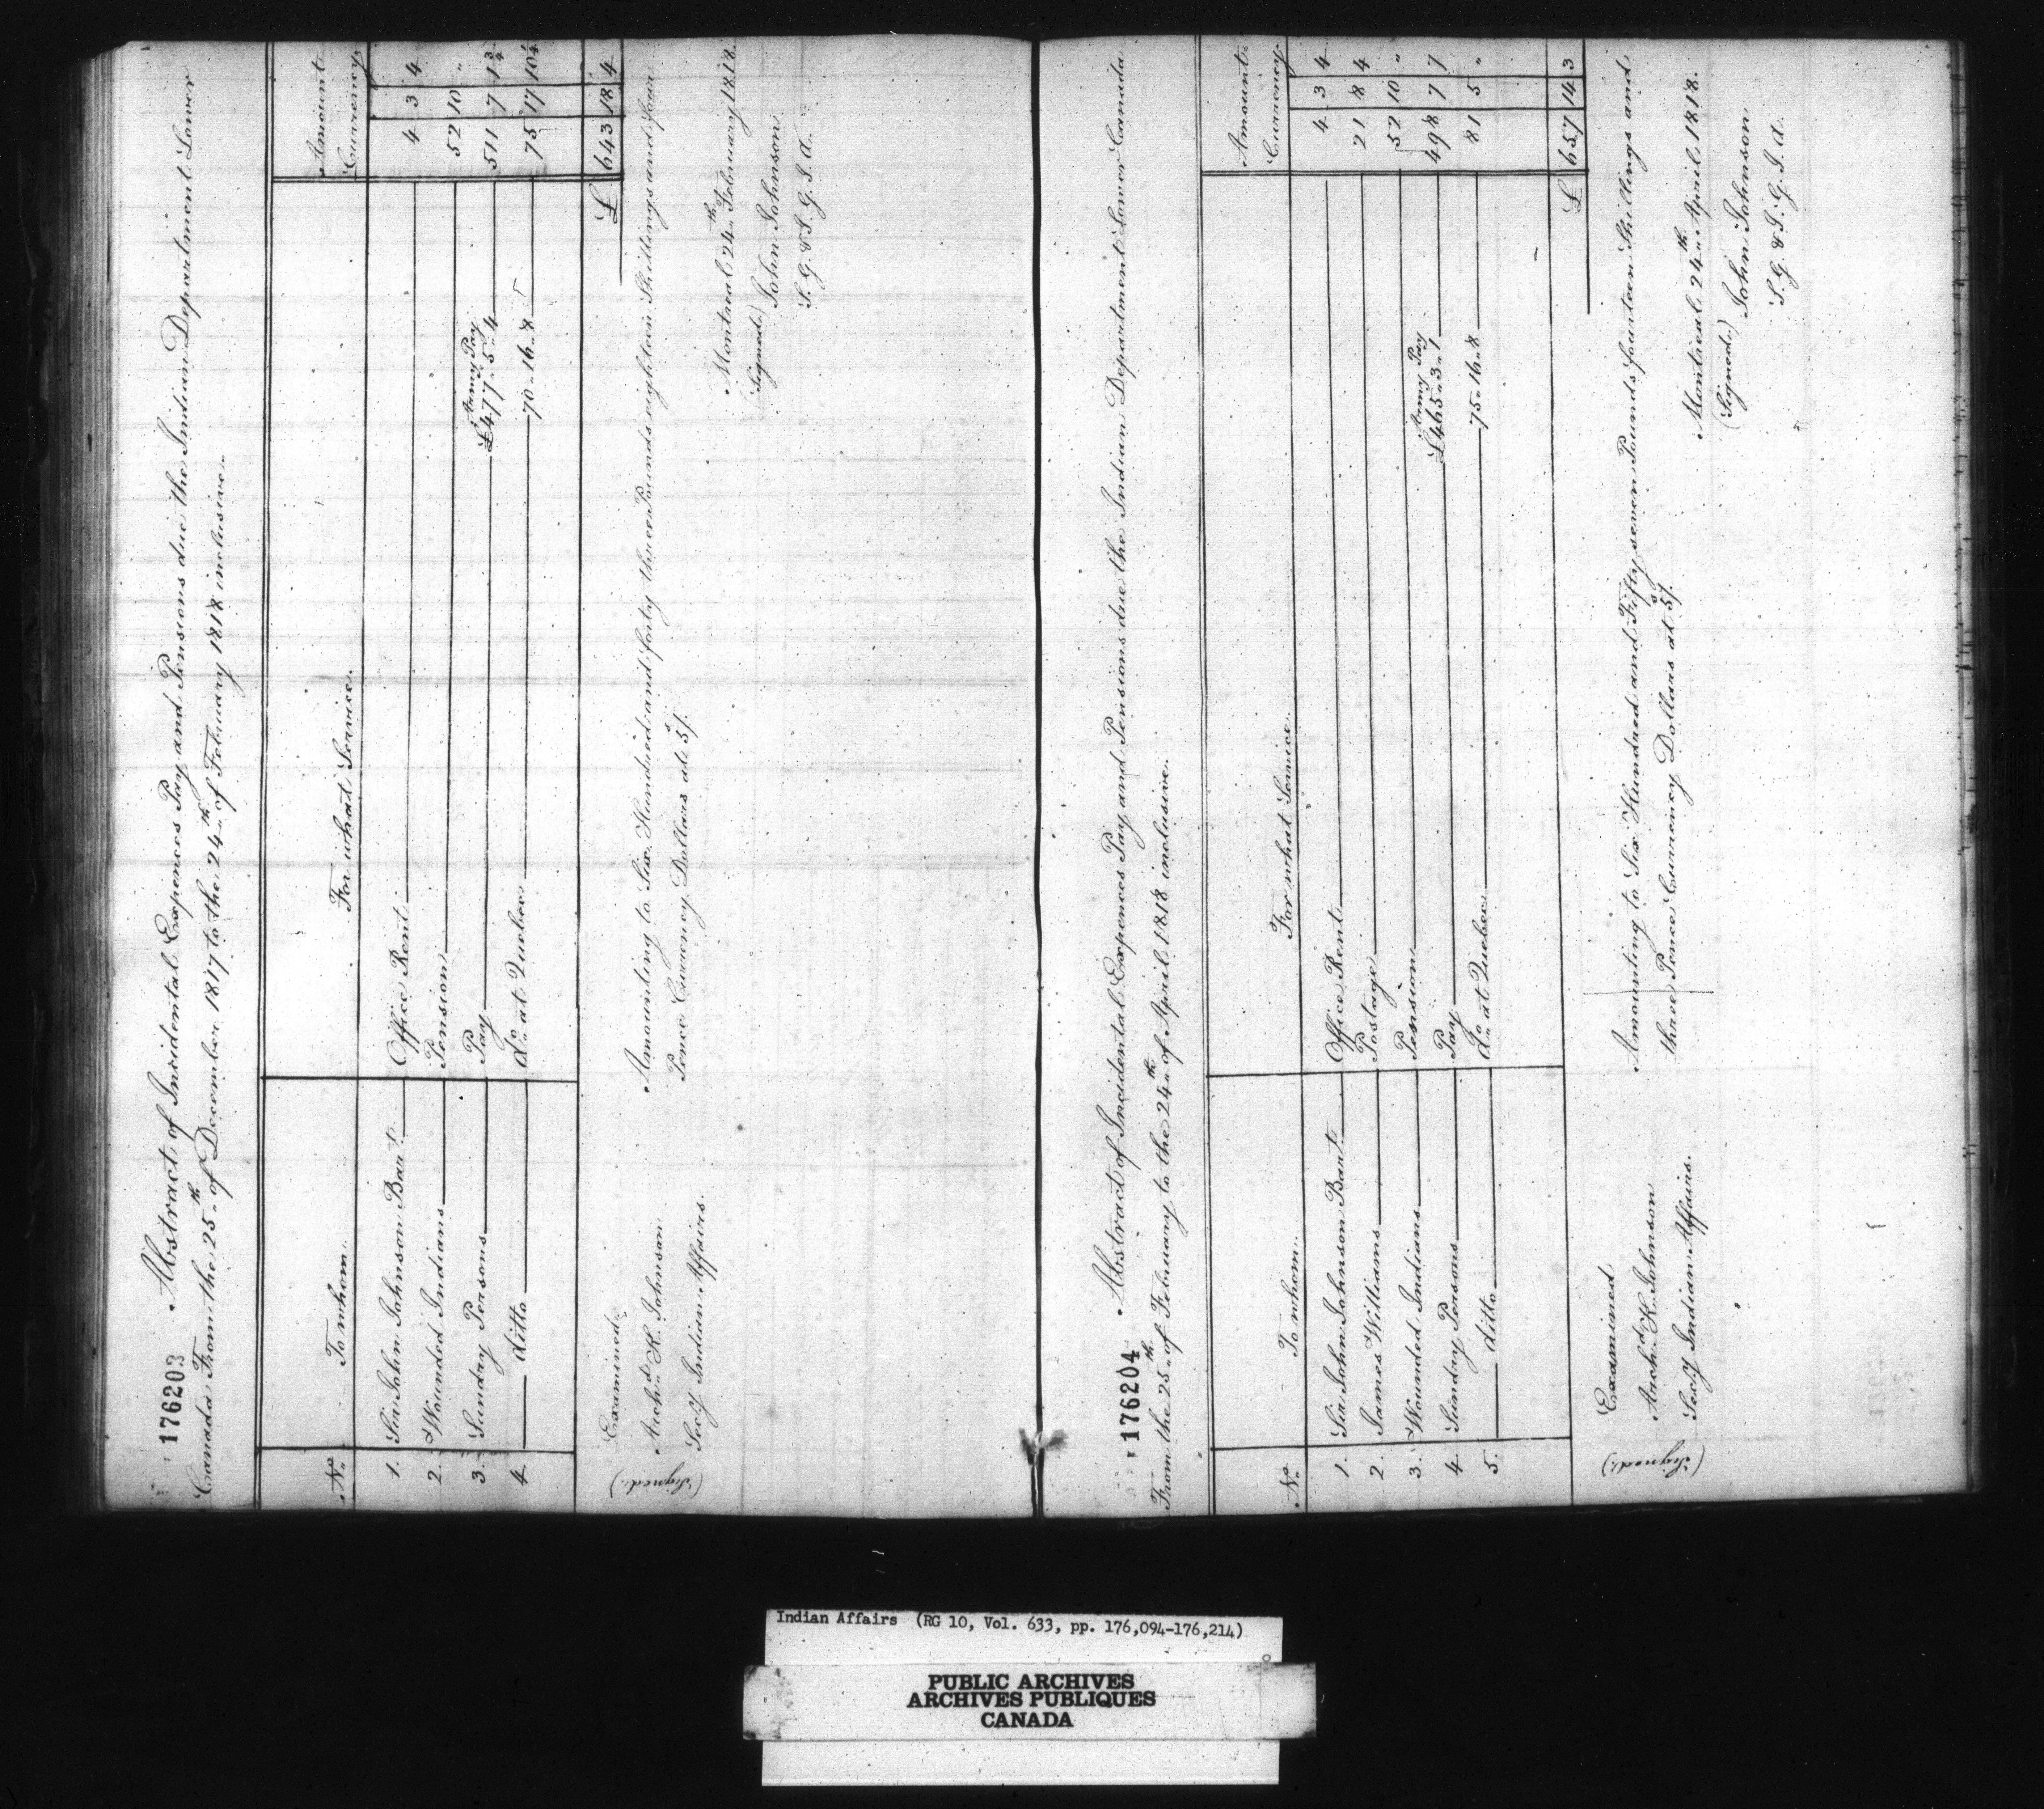 176203
Abstract of Incidental Expences Pay and Pensions due the Indian Department Lower
Canada From the 25th of December 1817 to the 24th of February 1818 inclusive.
No. To whom. For what Service. Amount Currency
1. Sir John Johnson Bart. Office Rent 4 3 4
2. Wounded Indians Pension 52 10 "
3. Sunday Persons Pay Army Pay £477.. 5.. 4 511 7 1 3/4
4. ditto do. at Quebec 70.. 16.. 8 75 17 10 1/4
£ 643 18 4
Amounting to Six Hundred and forty three Pounds eighteen Shillings and four
Pence Currency Dollars at 5/.
Montreal 24th February 1818.
(Signed) John Johnson
S. G. & I. G. I. A.
Examined.
(Signed.) Archd. K. Johnson
Secy Indian Affairs.
176204
Abstract of Incidental Expences Pay and Pensions due the Indian Department Lower Canada
From the 25th of February to the 24th of April 1818 inclusive.
No. To whom. For what Service. Amount Currency
1. Sir John Johnson Bart. Office Rent 4 3 4
2. James Williams Postage 21 8 4
3. Wounded Indians Pension 52 10 "
4. Sunday Persons Pay Army Pay £465.. 3.. 1 498 7 7
5. ditto do. at Quebec 75.. 16.. 8 81 5 "
£ 657 14 3
Amounting to Six Hundred and Fifty seven Pounds fourteen Shillings and
three Pence Currency Dollars at 5/.
Montreal 24th April 1818.
(Signed) John Johnson
S. G. & I. G. I. A.
Examined
(Signed.) Archd. K. Johnson
Secy Indian Affairs.
Indian Affairs (RG 10, Vol. 633, pp. 176,094-176,214)
PUBLIC ARCHIVES
ARCHIVES PUBLIQUES
CANADA